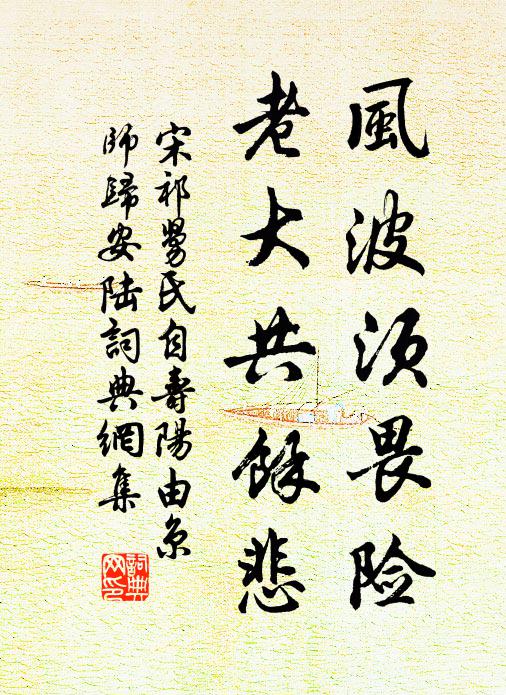 風波須畏險
老大共餘悲
宋祁舅氏自壽陽由京
師歸安陸詞典網集
詞典
网印